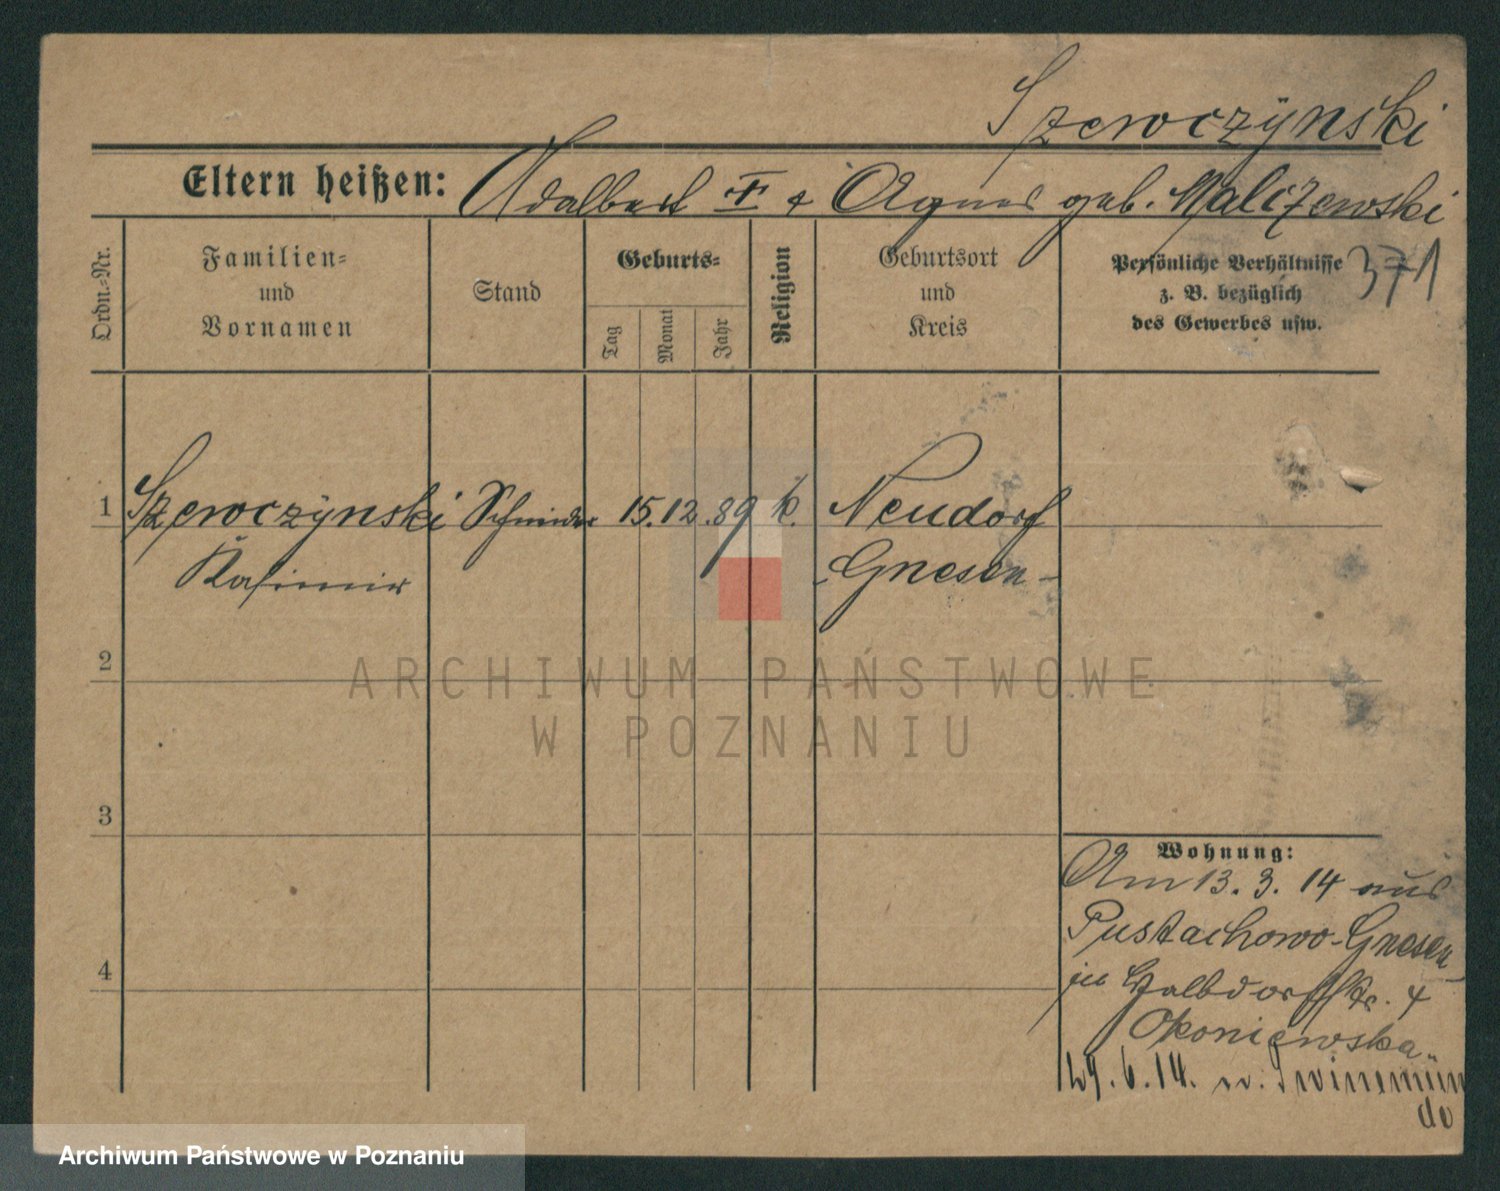 Szewczÿnski
Eltern heißen: Adalbert & Agnes geb. Malczewski
371
Ordn.-Nr.
Familien-
und
Vornamen
Stand
Geburts-
Tag
Monat
Jahr
Religion
Geburtsort
und
Kreis
Persönliche Verhältnisse
z. B. bezüglich
des Gewerbes usw.
1 Szewczÿnski Schneider 15. 12. 89 k. Neudorf
Kasimir Gnesen
2
3
4
Wohnung:
Am 13. 3. 14 aus
Pustachowo-Gnesen
in Halbdorfstr. 4
Okoniewska
29. 6. 14. n. Swinemün
de
ARCHIWUM PAŃSTWOWE
W POZNANIU
Archiwum Państwowe w Poznaniu